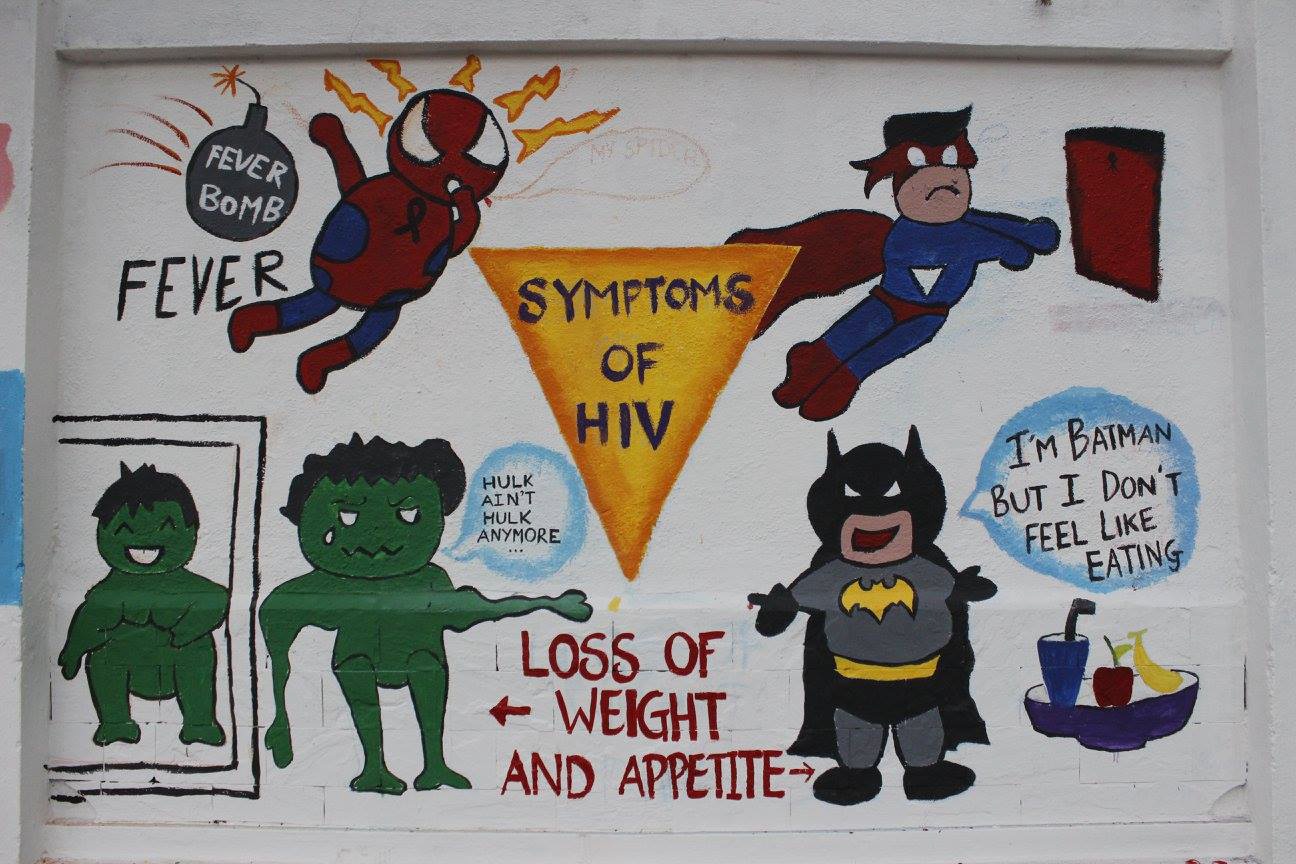 FEVER
BOMB
FEVER
MY SPIDER
SYMPTOMS
OF
HIV
HULK
AIN'T
HULK
ANYMORE
...
I'M BATMAN
BUT I DON'T
FEEL LIKE
EATING
LOSS OF
← WEIGHT
AND APPETITE→